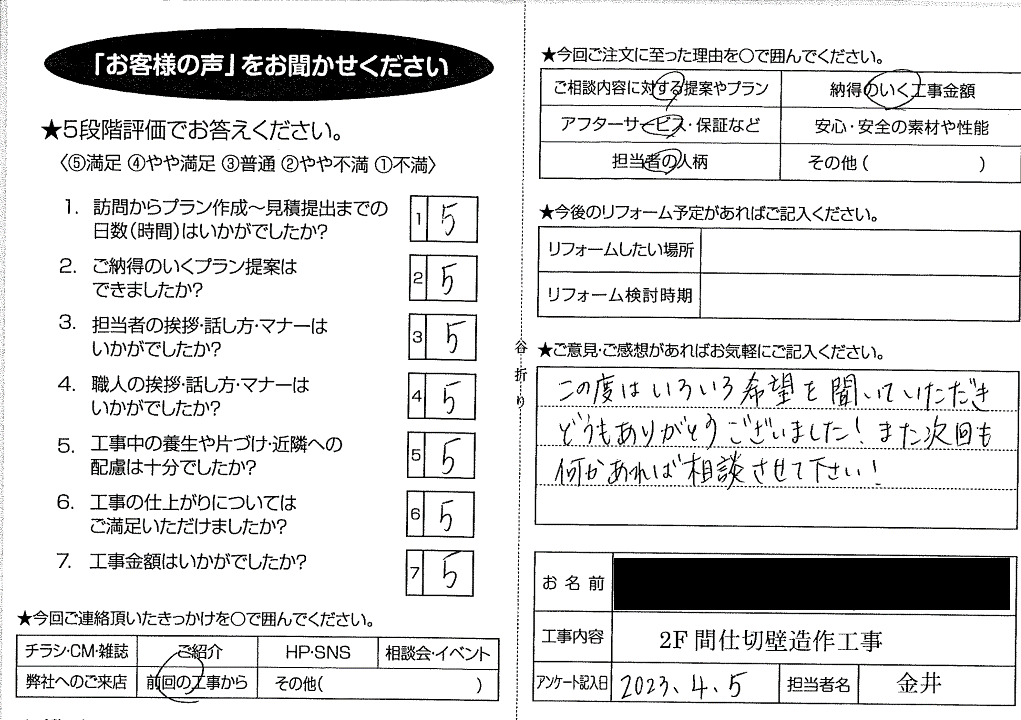 「お客様の声」をお聞かせください
★5段階評価でお答えください。
〈⑤満足 ④やや満足 ③普通 ②やや不満 ①不満〉
1. 訪問からプラン作成～見積提出までの
日数(時間)はいかがでしたか?
1 5
2. ご納得のいくプラン提案は
できましたか?
2 5
3. 担当者の挨拶・話し方・マナーは
いかがでしたか?
3 5
4. 職人の挨拶・話し方・マナーは
いかがでしたか?
4 5
5. 工事中の養生や片づけ・近隣への
配慮は十分でしたか?
5 5
6. 工事の仕上がりについては
ご満足いただけましたか?
6 5
7. 工事金額はいかがでしたか?
7 5
★今回ご連絡頂いたきっかけを○で囲んでください。
チラシ・CM・雑誌 ご紹介 HP・SNS 相談会・イベント
弊社へのご来店 前回の工事から その他( )
谷折り
★今回ご注文に至った理由を○で囲んでください。
ご相談内容に対する提案やプラン 納得のいく工事金額
アフターサービス・保証など 安心・安全の素材や性能
担当者の人柄 その他( )
★今後のリフォーム予定があればご記入ください。
リフォームしたい場所
リフォーム検討時期
★ご意見・ご感想があればお気軽にご記入ください。
この度はいろいろ希望を聞いていただき
どうもありがとうございました!また次回も
何かあれば相談させて下さい!
お名前
工事内容 2F 間仕切壁造作工事
アンケート記入日 2023.4.5 担当者名 金井